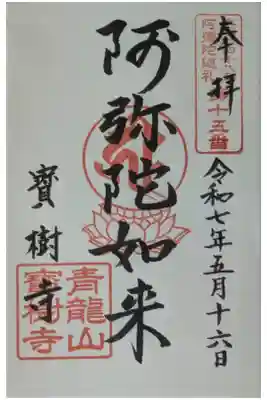 奉拝
阿弥陀巡礼
第十五番
令和七年五月十六日
阿弥陀如来
寳樹寺
青龍山
寳樹寺